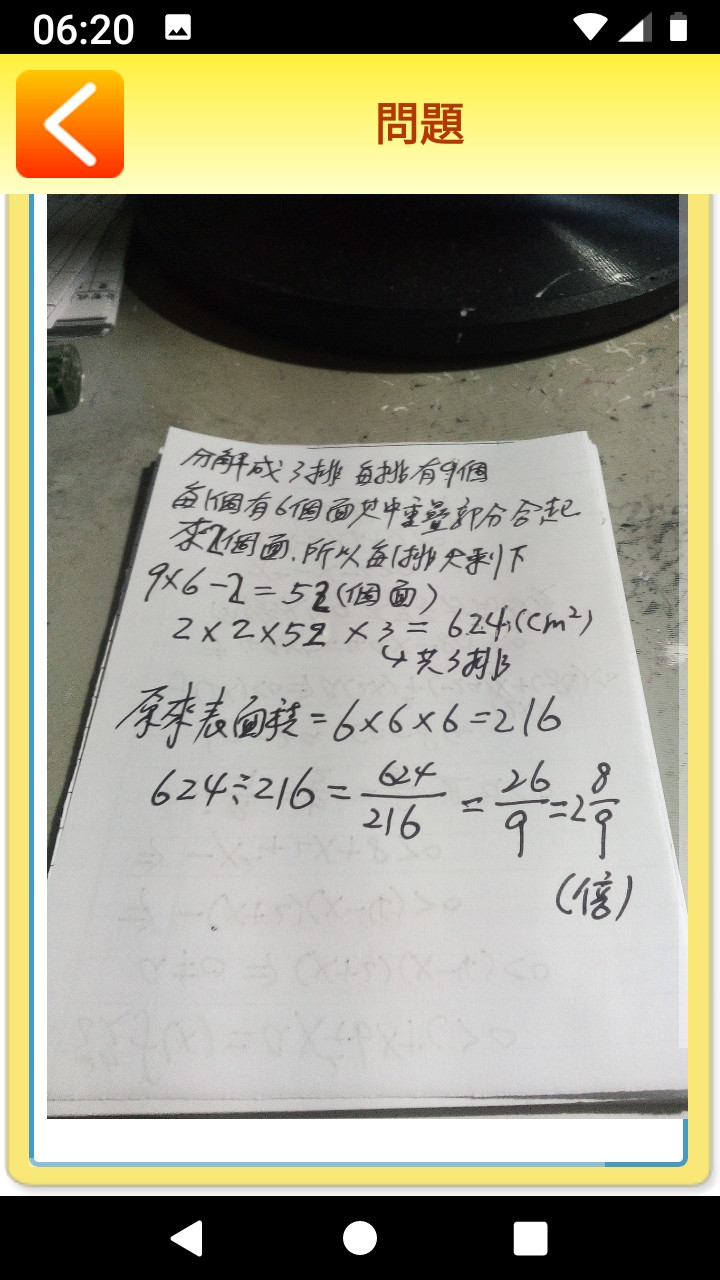 06:20
問題
分解成3排 每排有9個
每1個有6個面其中重疊部分合起
來2個面.所以每1排只剩下
9×6-2=52(個面)
2×2×52×3=624(cm²)
↳共3排
原來表面積=6×6×6=216
624÷216=624/216=26/9=2 8/9
(倍)